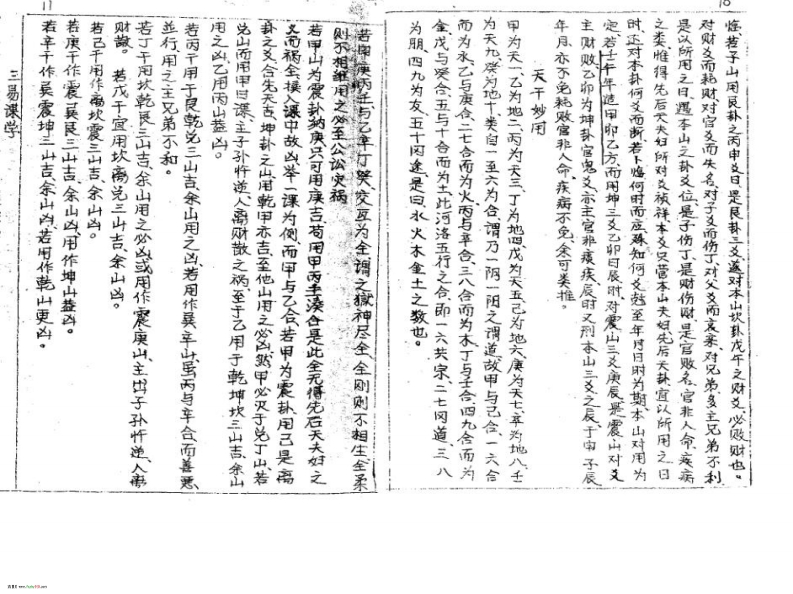 10
临。若子山用艮卦之丙申爻日，是艮卦三爻，遂对本山坎卦戊午之财爻，必败财也。
对财爻而耗财，对官爻而失名，对子爻而伤丁，对父爻而哀来，对兄弟多主兄弟不利
是以所用之日，遇本山之卦爻位，是子伤丁，是财伤财，是官败名，官非人命，疾病
之类，惟得先后天夫妇所对爻祯祥，本爻只管本山夫妇先后天卦，宜以所用之日
时，还对本卦何爻而断，若卜临何时而应，殊知何爻克至年月日时为期，本山对用为
定，若壬午年造甲卯乙方，而用坤三爻乙卯日辰时，对震山三爻庚辰，是震山对爻
主财败，乙卯为坤卦官鬼爻，亦主官非痿疾，辰时又刑本山三爻之辰，于申子辰
年月，亦不免耗败官非人命，疾病不免，余可类推。
天干妙用
甲为天一，乙为地二，丙为天三，丁为地四，戊为天五，己为地六，庚为天七，辛为地八，壬
为天九，癸为地十，类自一至六为合，谓乃一阴一阳之谓道，故甲与己合，一六合
而为水，乙与庚合，二七合而为火，丙与辛合，三八合而为木，丁与壬合，四九合而为
金，戊与癸合，五与十合而为土，此河洛五行之合，即一六共宗，二七同道，三八
为朋，四九为友，五十同途，是曰，水火木金土之数也。
11
若用庚丙壬与乙辛丁癸，交互为全，谓之狱神尽全，全刚则不相生，全柔
则不相继，用之必至公讼灾祸
若甲山为震卦纳庚，只可用庚吉，苟用甲丙辛凑合，是此全无得先后天夫妇之
义而祸，全操入课中故凶，举一课为例，而甲与乙合，若甲为震卦，用己是离
卦之爻合先天吉，坤卦之山用乾甲亦吉，至他山用之必凶，然甲必灭于兑丁山，若
兑山而用甲日课，主子孙忤逆人离财散之祸，至于乙用于乾坤坎三山吉，余山
用之凶，乙用丙山益凶。
若丙干用于艮乾兑三山吉，余山用之凶，若用作巽辛山，虽丙与辛合，而善恶
並行，用之主兄弟不和。
若丁干用坎乾艮三山吉，余山用之必凶，或用作震庚山，主出子孙忤逆人离
财散。若戊干宜用坎离兑三山吉，余山凶。
若己干用作离坎震三山吉，余山凶。
若庚干作震巽艮三山吉，余山凶，用作坤山益凶。
若辛干作巽震坤三山吉，余山凶，若用作乾山更凶。
三易课学